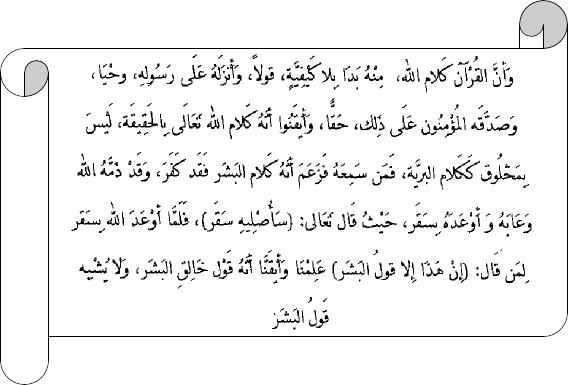 وَأنَّ القُرْآنَ كَلام الله، مِنْهُ بَدَا بِلا كَيْفِيَّةٍ، قولاً، وَأنزَلَهُ عَلَى رَسُولِهِ، وحْيَا،
وَصَدَّقَه المُؤْمِنُون عَلَى ذلِك، حَقًّا، وَأيقَنُوا أنَّهُ كَلام الله تَعَالَى بِالحَقِيقَة، لَيْسَ
بِمَخْلُوقٍ كَكَلام البريَّة، فَمَن سَمِعَهُ فَزَعَمَ أنَّهُ كَلام البَشَر فَقَد كَفَرَ، وَقَدْ ذَمَّهُ الله
وَعَابَهُ وَ أوْعَدَهُ بِسَقَر، حَيْثُ قَال تَعَالى: {سَأُصْلِيهِ سَقَر}، فَلَمَّا أوْعَدَ الله بِسَقر
لِمَن قَال: {إنْ هَذَا إلا قولُ البَشَر} عَلِمْنَا وَأيْقَنَّا أنَّهُ قَوْل خَالِقِ البَشَر، وَلا يُشْبِه
قَولُ البَشَر